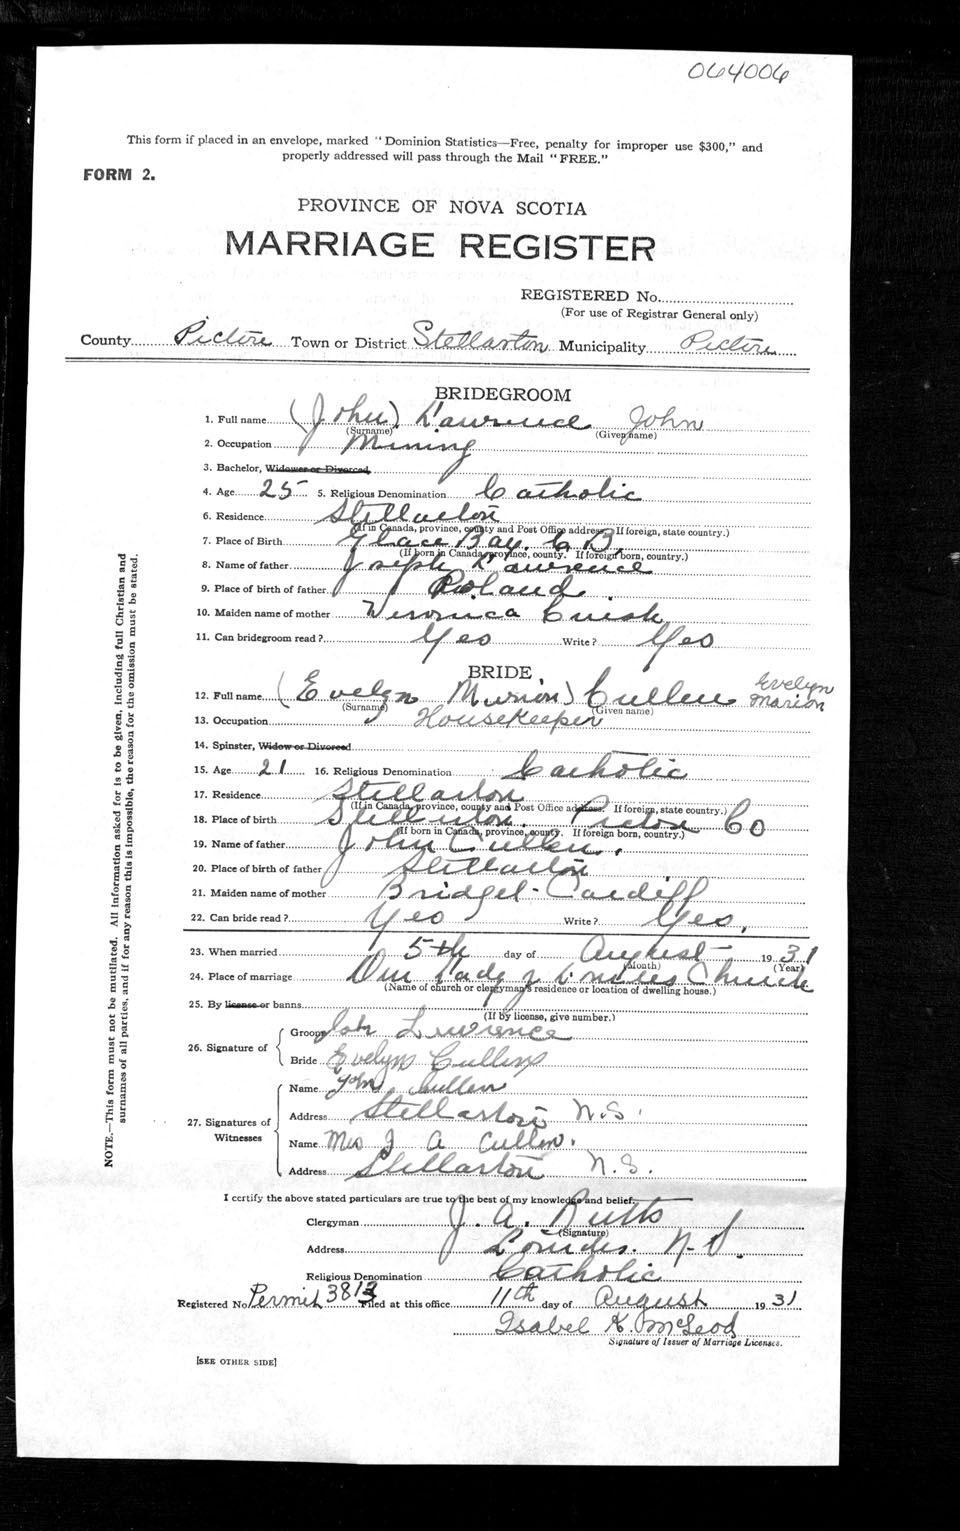 064006
This form if placed in an envelope, marked "Dominion Statistics—Free, penalty for improper use $300," and
properly addressed will pass through the Mail "FREE."
FORM 2.
PROVINCE OF NOVA SCOTIA
MARRIAGE REGISTER
REGISTERED No.
(For use of Registrar General only)
County Pictou Town or District Stellarton Municipality Pictou
BRIDEGROOM
1. Full name (John) Lawrence John
(Surname) (Given name)
2. Occupation Mining
3. Bachelor, Widower or Divorced
4. Age 25 5. Religious Denomination Catholic
6. Residence Stellarton
(If in Canada, province, county and Post Office address. If foreign, state country.)
7. Place of Birth Glace Bay. C. B.
(If born in Canada, province, county. If foreign born, country.)
8. Name of father Joseph Lawrence
9. Place of birth of father Poland.
10. Maiden name of mother Veronica
11. Can bridegroom read? Yes Write? Yes
BRIDE
12. Full name (Evelyn Marion) Cullen Evelyn Marion
(Surname) (Given name)
13. Occupation Housekeeper
14. Spinster, Widow or Divorced
15. Age 21 16. Religious Denomination Catholic
17. Residence Stellarton
(If in Canada, province, county and Post Office address. If foreign, state country.)
18. Place of birth Stellarton. Pictou Co
(If born in Canada, province, county. If foreign born, country.)
19. Name of father John Cullen.
20. Place of birth of father Stellarton
21. Maiden name of mother Bridget Cardiff
22. Can bride read? Yes Write? Yes,
23. When married 5th day of August 1931
(Month) (Year)
24. Place of marriage Our Lady of Lourdes Church
(Name of church or clergyman's residence or location of dwelling house.)
25. By license or banns
(If by license, give number.)
26. Signature of
Groom John Lawrence
Bride Evelyn Cullen
27. Signatures of Witnesses
Name John Cullen
Address Stellarton N.S.
Name Mrs J A Cullen.
Address Stellarton N.S.
I certify the above stated particulars are true to the best of my knowledge and belief.
Clergyman J. A. Butts
(Signature)
Address Lourdes. N.S.
Religious Denomination Catholic
Registered No. Permit 3813 Filed at this office 11th day of August 1931
Isabel K. McLeod
Signature of Issuer of Marriage Licenses.
[SEE OTHER SIDE]
NOTE.—This form must not be mutilated. All information asked for is to be given, including full Christian and
surnames of all parties, and if for any reason this is impossible, the reason for the omission must be stated.